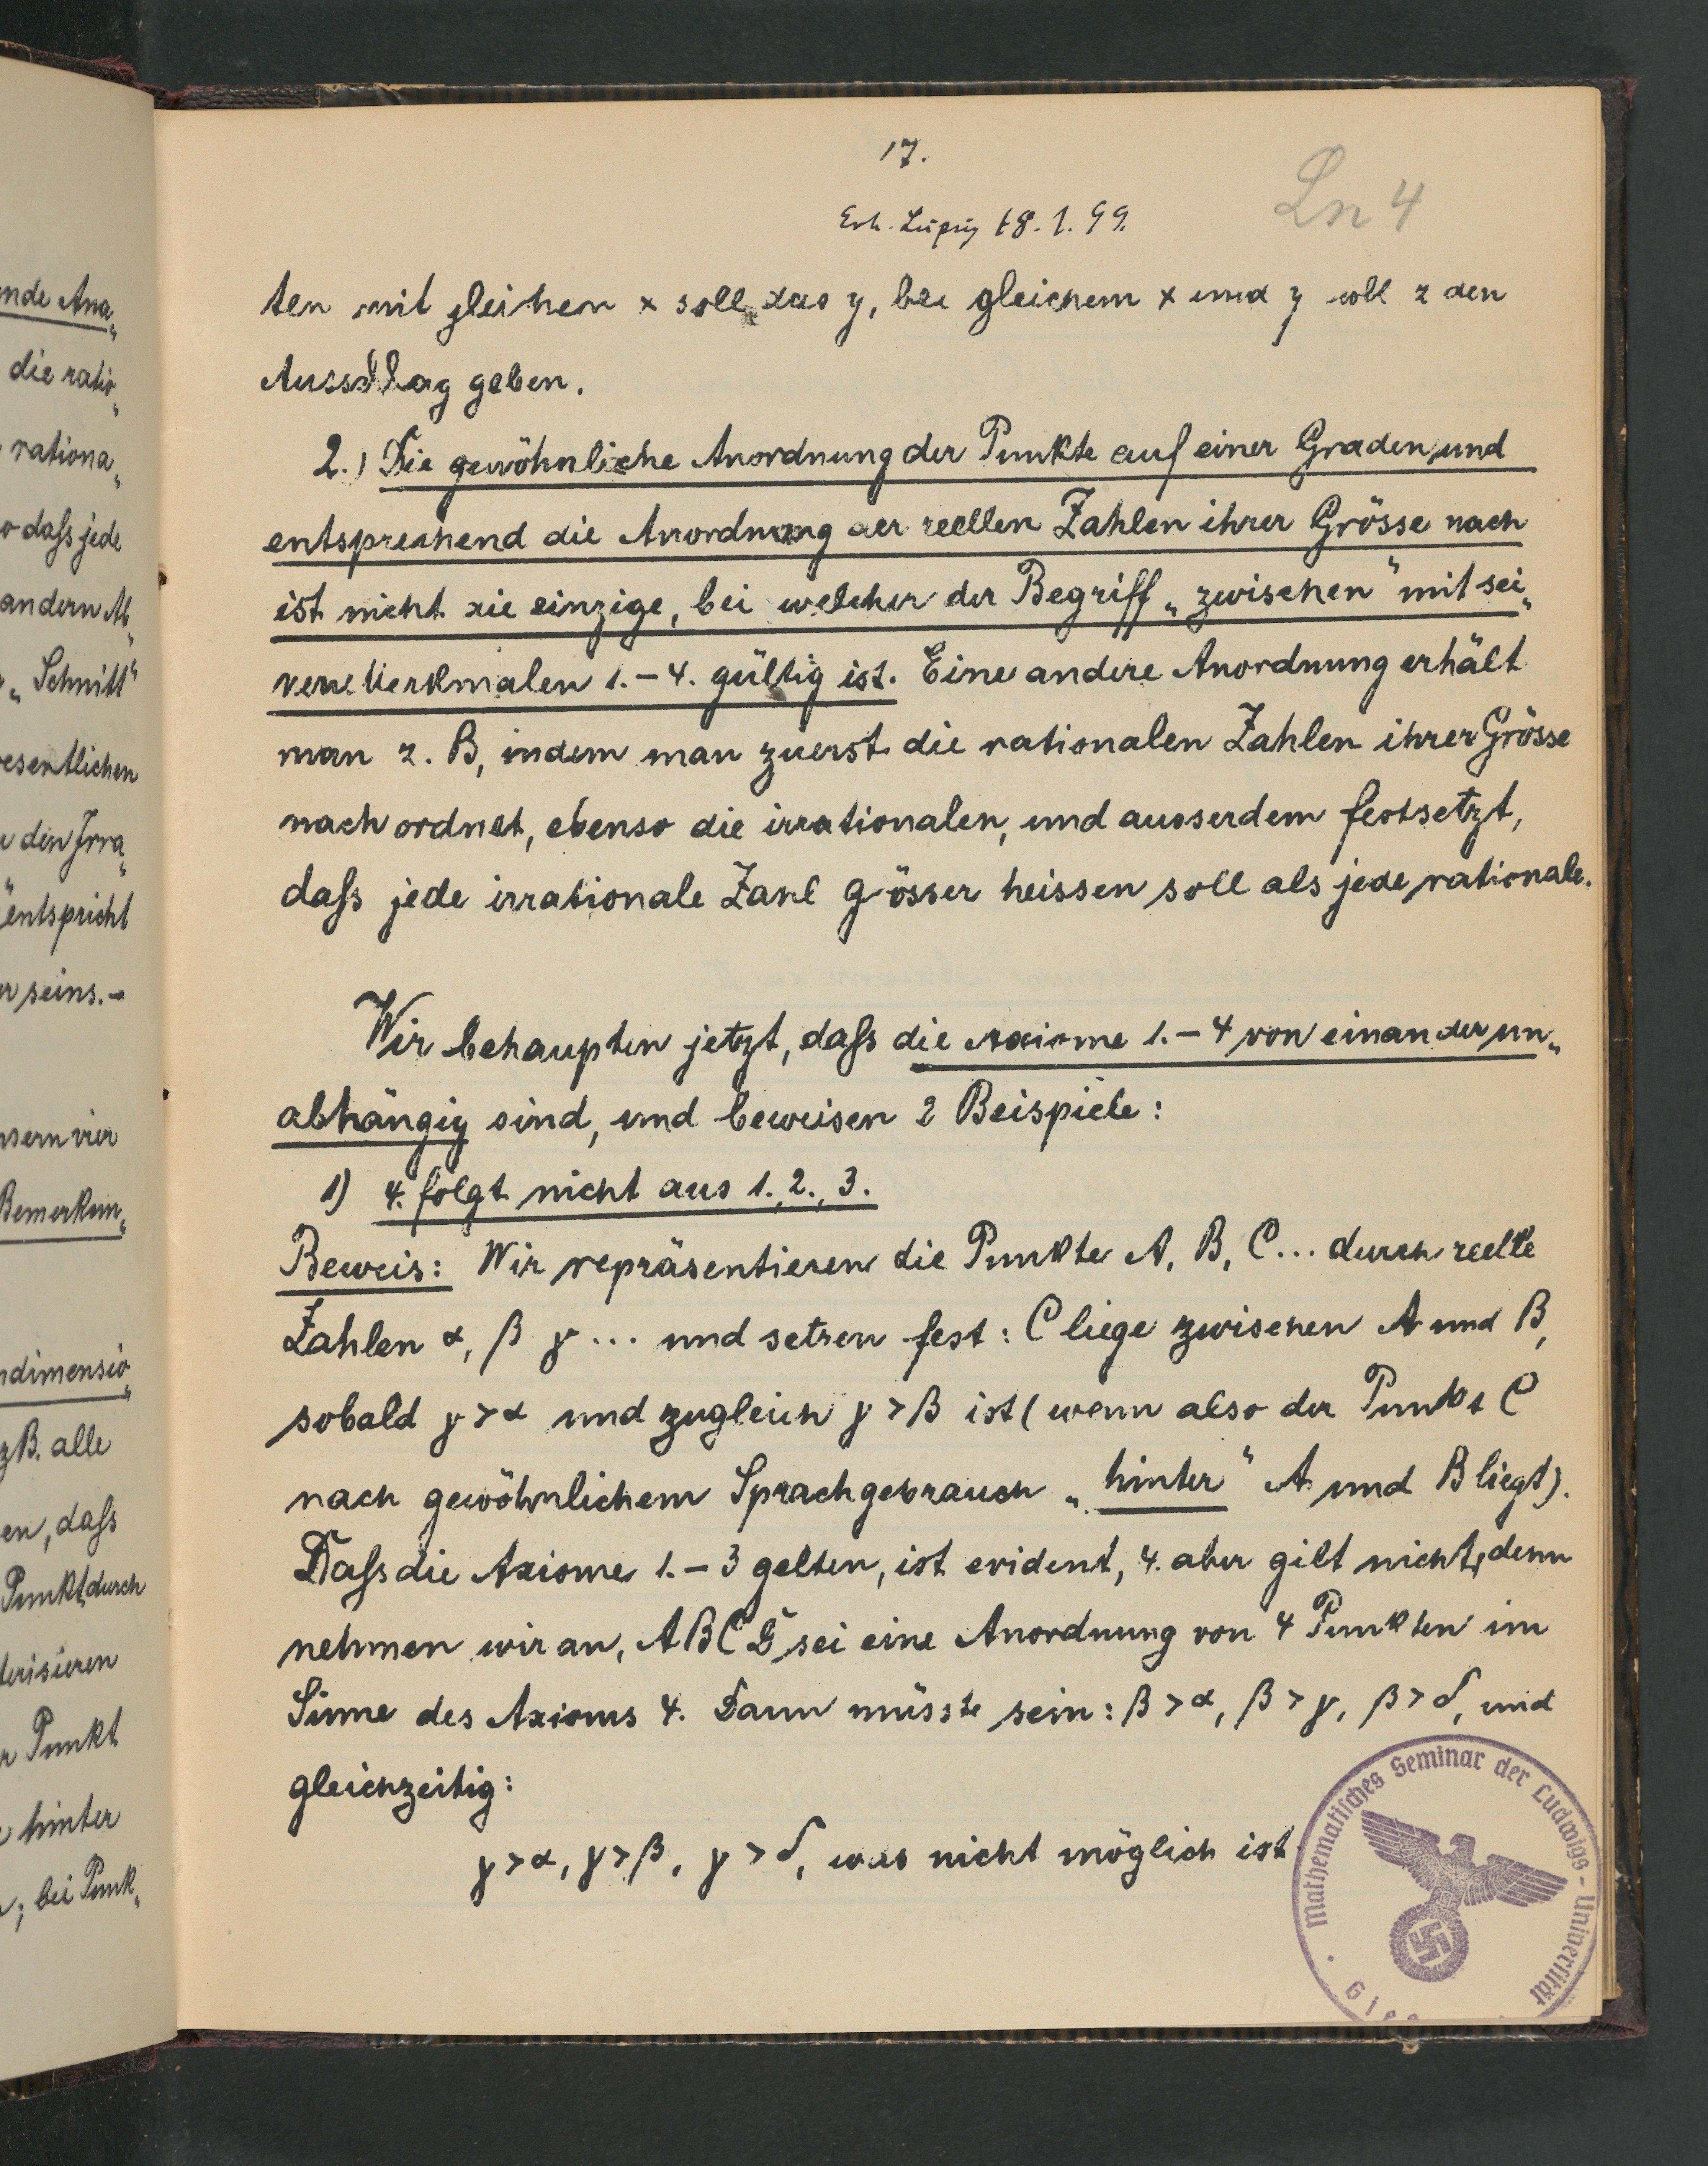 nde Ana„
die ratio„
rationa„
o daſs jede
andern Ab„
„Schnitt“
esentlichen
den Irra„
entspricht
r seins.-
nsern vier
Bemerkun„
ndimensio„
z B. alle
en, daſs
Punkt durch
terisieren
r Punkt
hinter
; bei Punk„
17.
Erh. Leipzig 18.1.99.
Ln 4
ten mit gleichen x soll das y, bei gleichem x und y soll z den
Ausschlag geben.
2.) Die gewöhnliche Anordnung der Punkte auf einer Graden und
entsprechend die Anordnung der reellen Zahlen ihrer Grösse nach
ist nicht die einzige, bei welcher der Begriff „zwischen“ mit sei„
nen Merkmalen 1.–4. gültig ist. Eine andere Anordnung erhält
man z. B, indem man zuerst die rationalen Zahlen ihrer Grösse
nach ordnet, ebenso die irrationalen, und ausserdem festsetzt,
daſs jede irrationale Zahl grösser heissen soll als jede rationale.
Wir behaupten jetzt, daſs die Axiome 1.–4 von einander un„
abhängig sind, und beweisen 2 Beispiele:
1) 4. folgt nicht aus 1., 2., 3.
Beweis: Wir repräsentieren die Punkte A, B, C... durch reelle
Zahlen α, β γ... und setzen fest: C liege zwischen A und B,
sobald γ > α und zugleich γ > β ist (wenn also der Punkt C
nach gewöhnlichem Sprachgebrauch „hinter“ A und B liegt).
Daſs die Axiome 1.–3 gelten, ist evident, 4. aber gilt nicht, denn
nehmen wir an, ABCD sei eine Anordnung von 4 Punkten im
Sinne des Axioms 4. Dann müsste sein: β > α, β > γ, β > δ, und
gleichzeitig:
γ > α, γ > β, γ > δ, was nicht möglich ist
Mathematisches Seminar der Ludwigs-Universität